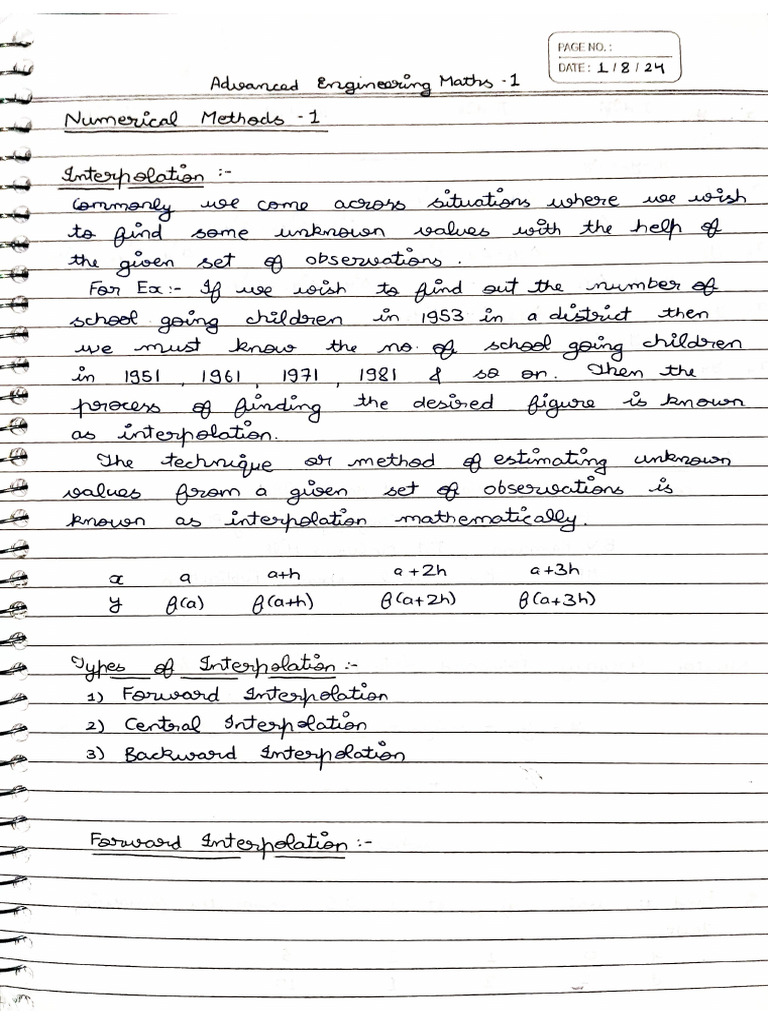 PAGE NO.:
DATE: 1/8/24
Advanced Engineering Maths - 1
Numerical Methods - 1
Interpolation :-
Commonly we come across situations where we wish
to find some unknown values with the help of
the given set of observations.
For Ex:- If we wish to find out the number of
school going children in 1953 in a district then
we must know the no. of school going children
in 1951, 1961, 1971, 1981 & so on. Then the
process of finding the desired figure is known
as interpolation.
The technique or method of estimating unknown
values from a given set of observations is
known as interpolation mathematically.
x a a+h a+2h a+3h
y f(a) f(a+h) f(a+2h) f(a+3h)
Types of Interpolation :-
1) Forward Interpolation
2) Central Interpolation
3) Backward Interpolation
Forward Interpolation :-